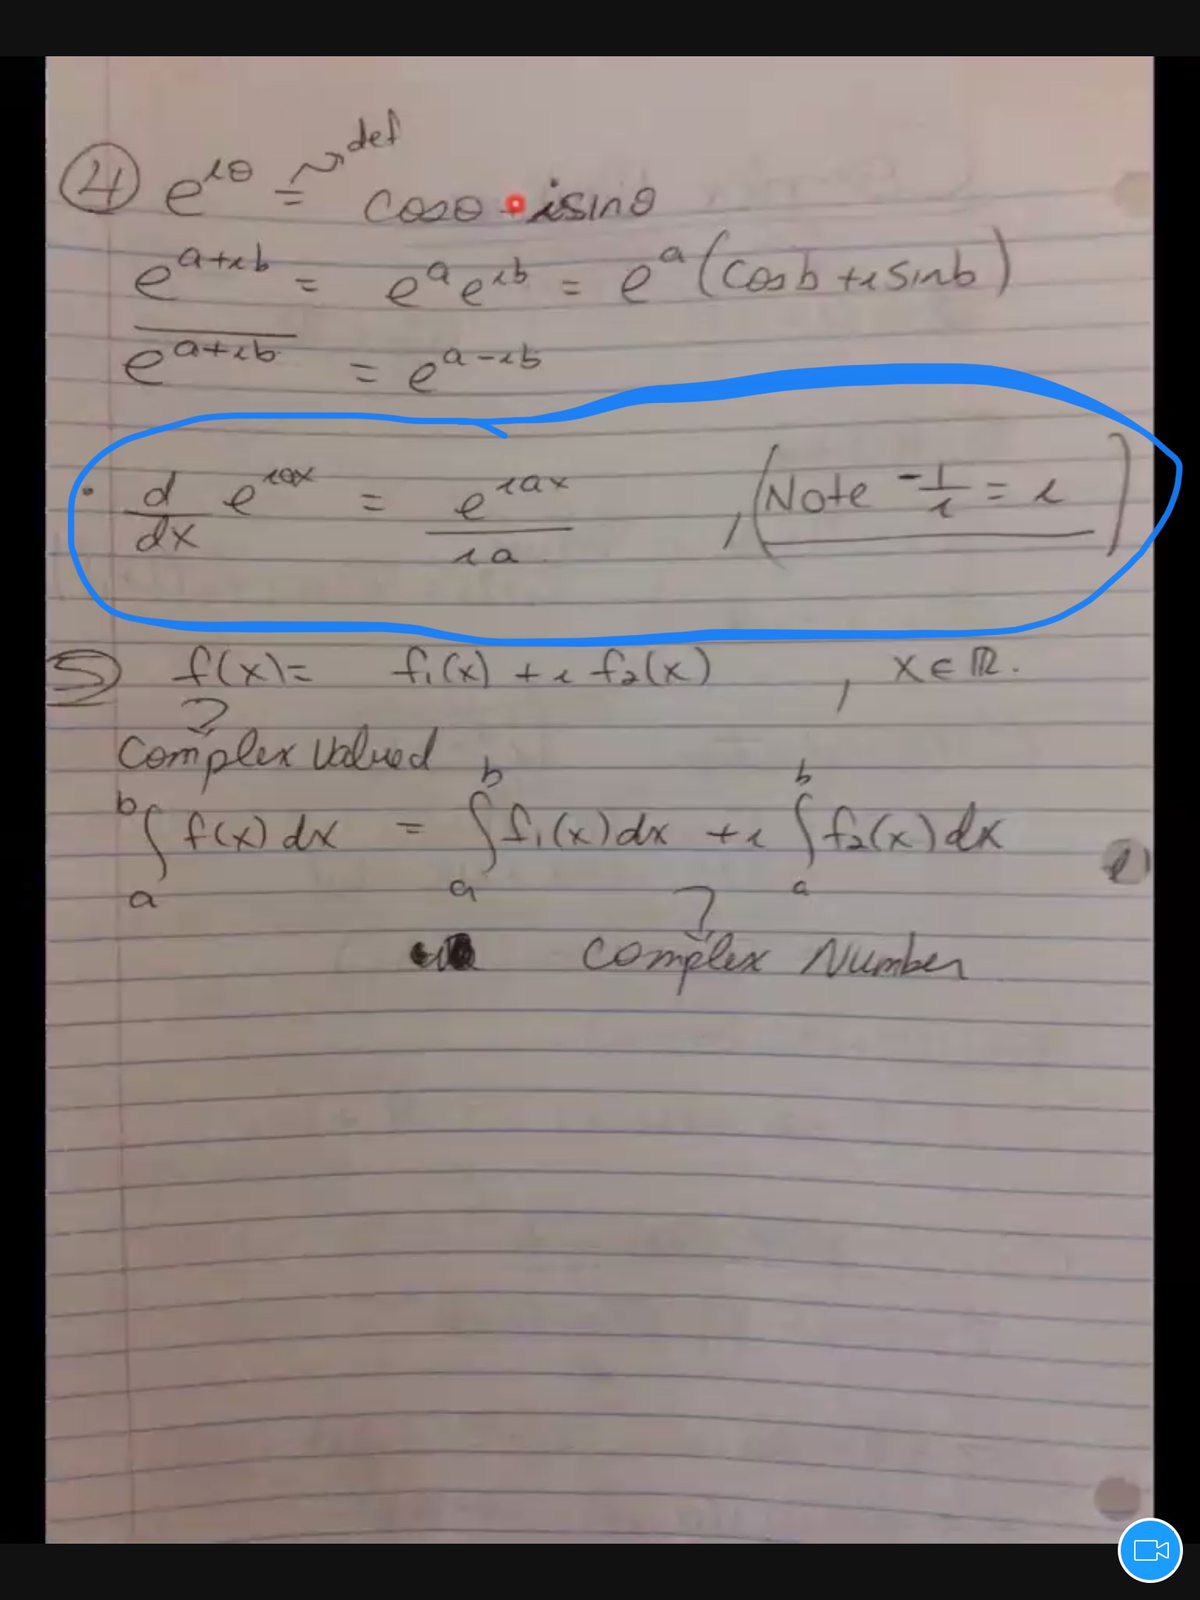 ④ e^{iθ} = cosθ isinθ
def
e^{a+ib} = e^a e^{ib} = e^a (cosb + i sinb)
\overline{e^{a+ib}} = e^{a-ib}
• d/dx e^{iax} = e^{iax}/ia , (Note -1/i = i)
⑤ f(x) = f₁(x) + i f₂(x) , x ∈ ℝ.
Complex Valued
∫_a^b f(x) dx = ∫_a^b f₁(x) dx + i ∫_a^b f₂(x) dx
Complex Number